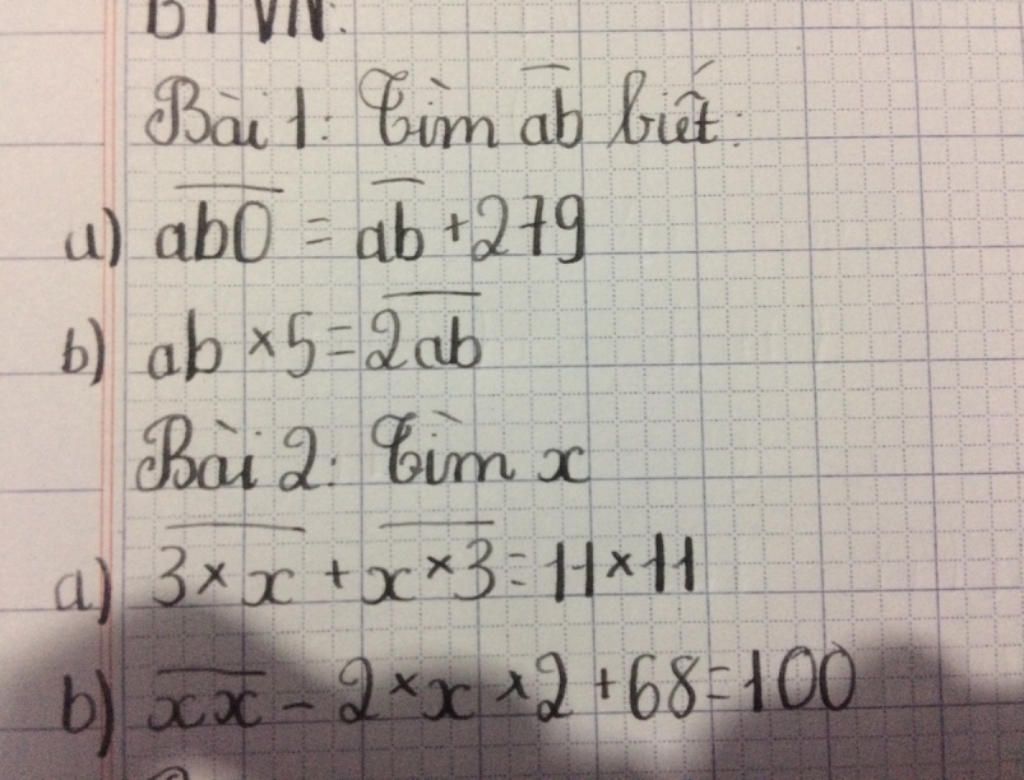 BTVN:
Bài 1: Tìm \overline{ab} biết:
a) \overline{ab0} = \overline{ab} + 279
b) ab × 5 = \overline{2ab}
Bài 2: Tìm x
a) \overline{3 × x} + \overline{x × 3} = 11 × 11
b) \overline{xx} - 2 × x × 2 + 68 = 100